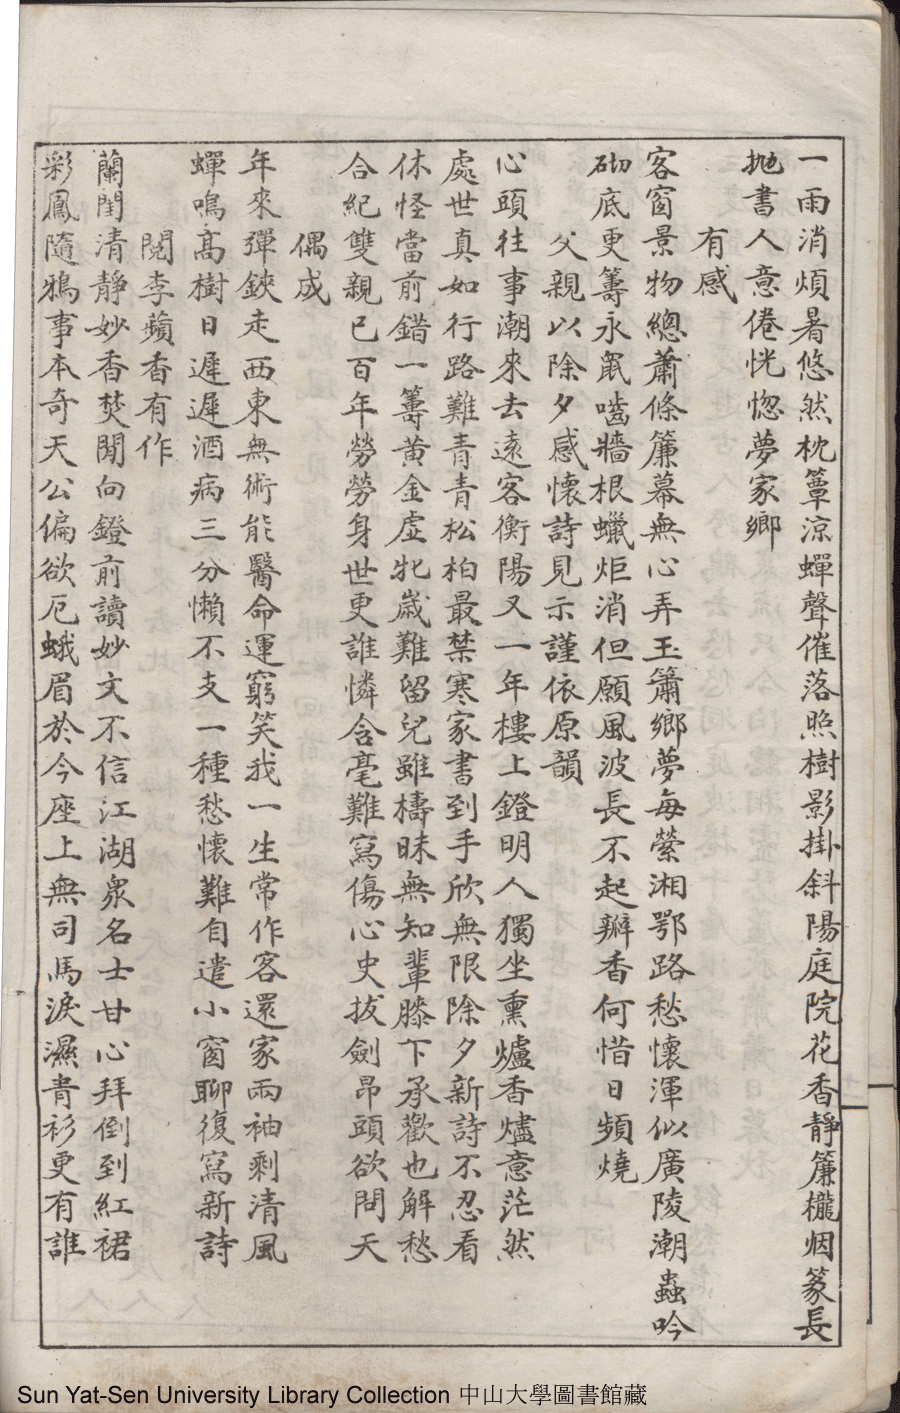 一雨消煩暑悠然枕簟涼蟬聲催落照樹影掛斜陽庭院花香靜簾櫳烟篆長
拋書人意倦恍惚夢家鄉
有感
客窗景物總蕭條簾幕無心弄玉簫鄉夢每縈湘鄂路愁懷渾似廣陵潮蟲吟
砌底更籌永鼠嚙牆根蠟炬消但願風波長不起瓣香何惜日頻燒
父親以除夕感懷詩見示謹依原韻
心頭往事潮來去遠客衡陽又一年樓上鐙明人獨坐熏爐香燼意茫然
處世真如行路難青青松柏最禁寒家書到手欣無限除夕新詩不忍看
休怪當前錯一籌黃金虛牝歲難留兒雖檮昧無知輩膝下承歡也解愁
合紀雙親已百年勞勞身世更誰憐含毫難寫傷心史拔劍昂頭欲問天
偶成
年來彈鋏走西東無術能醫命運窮笑我一生常作客還家兩袖剩清風
蟬鳴高樹日遲遲酒病三分懶不支一種愁懷難自遣小窗聊復寫新詩
閱李蘋香有作
蘭閨清靜妙香焚聞向鐙前讀妙文不信江湖衆名士甘心拜倒到紅裙
彩鳳隨鴉事本奇天公偏欲厄蛾眉於今座上無司馬淚濕青衫更有誰
Sun Yat-Sen University Library Collection 中山大學圖書館藏